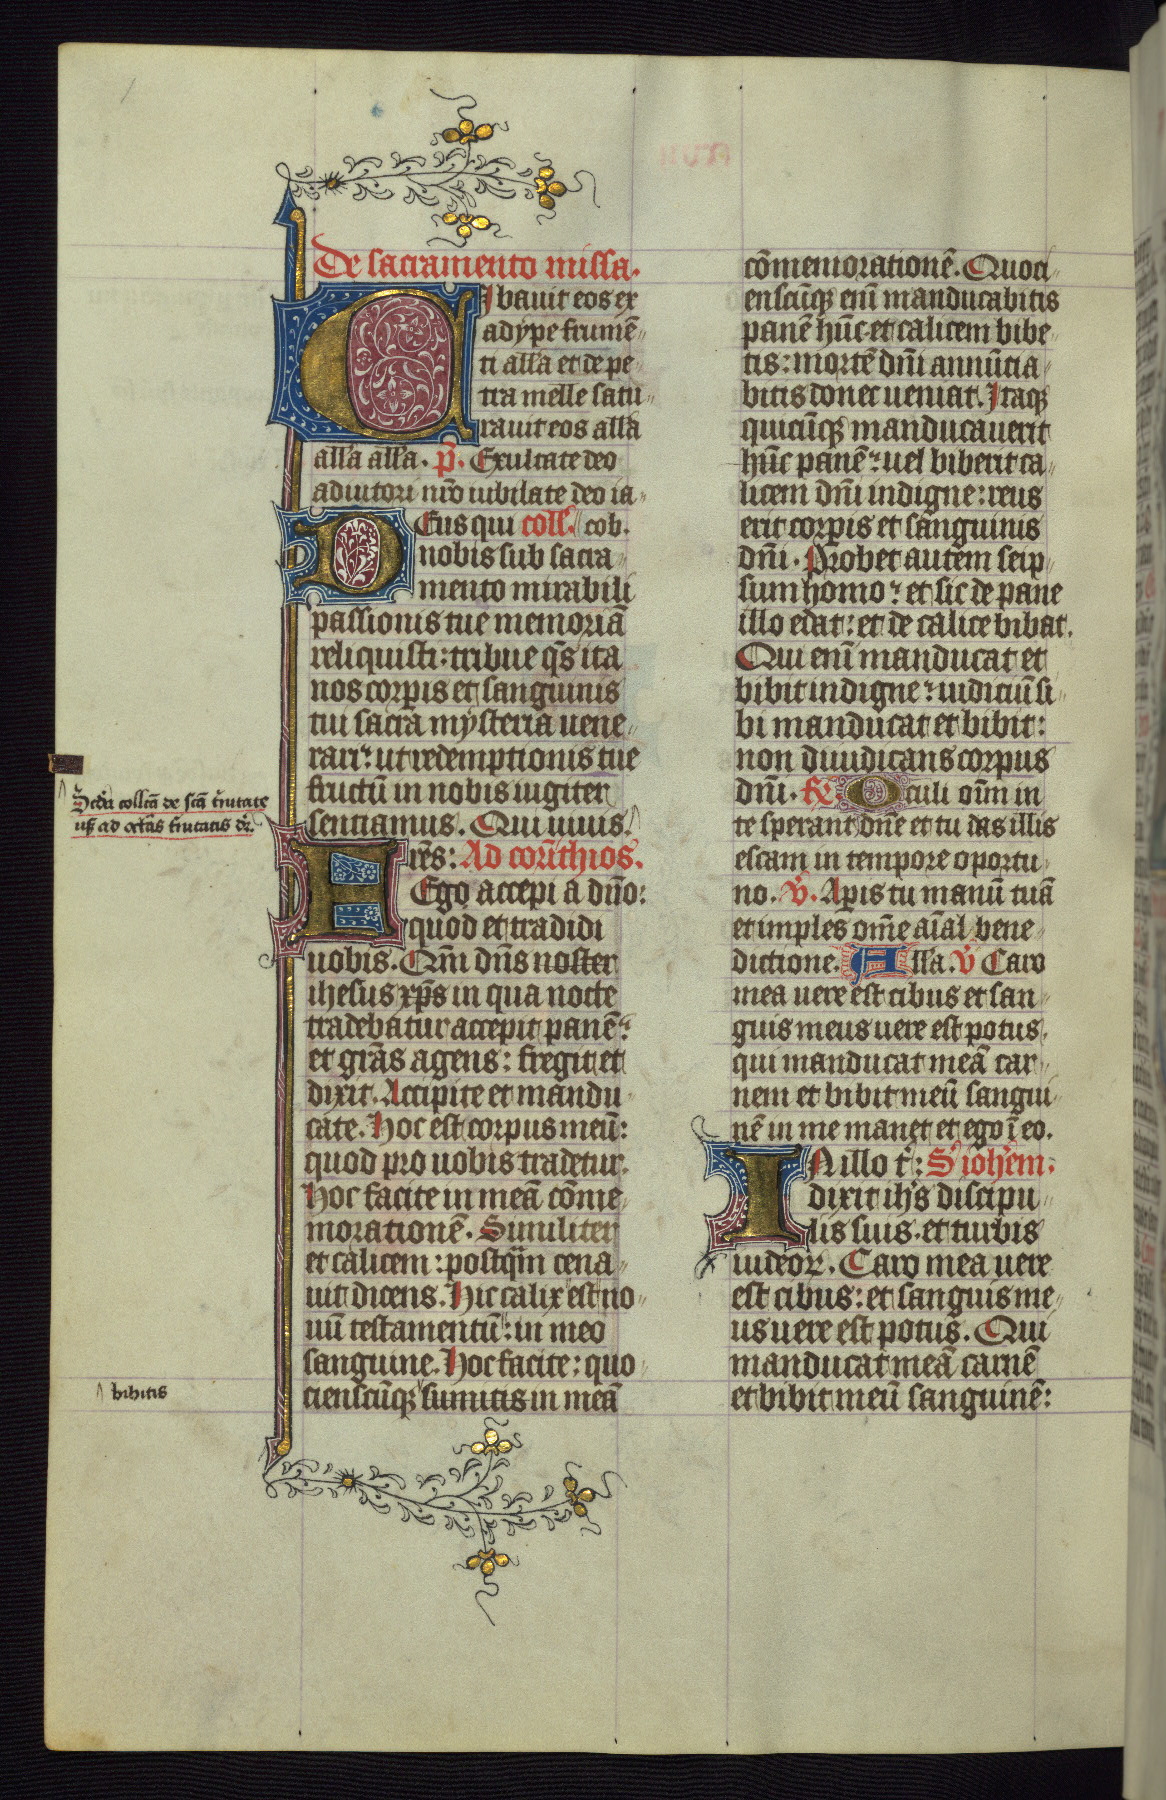 De sacramento missa.
Cibauit eos ex
adype frumē-
ti all'a et de pe-
tra melle satu-
rauit eos all'a
all'a all'a. p̄. Exultate deo
adiutori nr̄o iubilate deo ia-
Deus qui coll'. cob.
nobis sub sacra-
mento mirabili
passionis tue memoriā
reliquisti: tribue q̄s ita
nos corpis et sanguinis
tui sacra mysteria uene-
rari: ut redemptionis tue
fructū in nobis iugiter
sentiamus. Qui uiuis.
Frēs: Ad corīthios.
Ego accepi a dn̄o:
quod et tradidi
uobis. Qm̄ dn̄s noster
ihesus xp̄s in qua nocte
tradebatur accepit panē:
et grā̄s agens: fregit et
dixit. Accipite et mandu-
cate. Hoc est corpus meū:
quod pro uobis tradetur.
Hoc facite in meā cōme-
morationē. Similiter
et calicem: postq̄m cena-
uit dicens. Hic calix est no-
uū testamentū: in meo
sanguine. Hoc facite: quo-
cienscūqꝫ sumitis in meā
Scd̄a collc̄a de sc̄a t̄nitate
usqꝫ ad octā̄s t̄nitatis dr̄.
bibitis
cōmemorationē. Quoci-
enscūqꝫ enī manducabitis
panē hūc et calicem bibe-
tis: mortē dn̄i annūtia-
bitis donec ueniat. Itaqꝫ
quicūqꝫ manducauerit
hūc panē: uel biberit ca-
licem dn̄i indigne: reus
erit corpis et sanguinis
dn̄i. Probet autem seip-
sum homo: et sic de pane
illo edat: et de calice bibat.
Qui enī manducat et
bibit indigne: iudiciū si-
bi manducat et bibit:
non diiudicans corpus
dn̄i. R̄. Oculi om̄m in
te sperant dn̄e et tu das illis
escam in tempore oportu-
no. V̄. Apis tu manū tuā
et imples om̄e aīal bene-
dictione. All'a. V̄ Caro
mea uere est cibus et san-
guis meus uere est potus.
qui manducat meā car-
nem et bibit meū sangui-
nē in me manet et ego ī eo.
In illo t̄: S' ioh̄em.
dixit ih̄s discipu-
lis suis. et turbis
iudeoꝝ. Caro mea uere
est cibus: et sanguis me-
us uere est potus. Qui
manducat meā carnē
et bibit meū sanguinē: